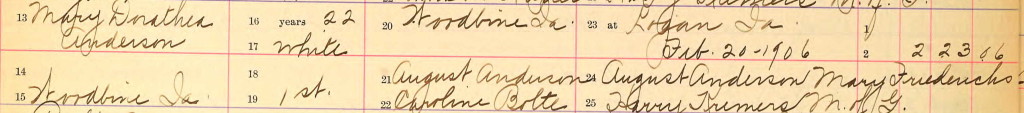 13 Mary Dorathea 16 years 22 20 Woodbine Ia. 23 at Logan Ia 1
Anderson 17 White Feb. 20-1906 2 2 23 06
14 18 21 August Anderson 24 August Anderson Mary Friederichs
15 Woodbine Ia. 19 1st. 22 Caroline Bolte 25 Harry Kremers M. of G.